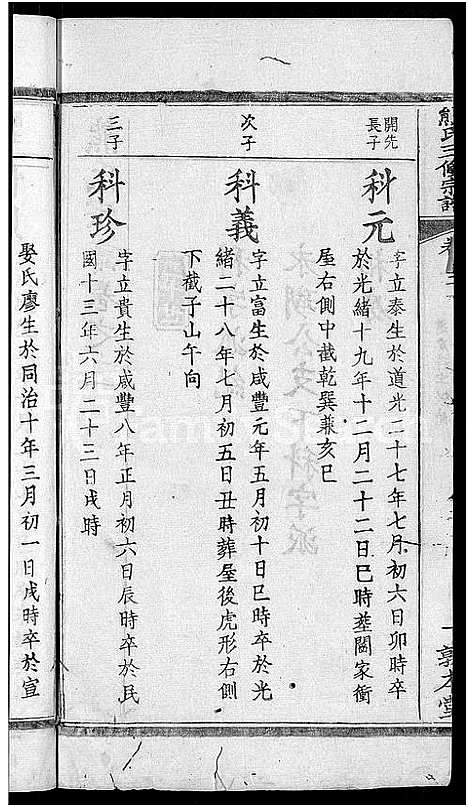 熊氏三修宗譜
卷
敦本堂
開先
長子
科元
字立泰生於道光二十七年七月初六日卯時卒
於光緒十九年十二月二十二日巳時塟閣家衝
屋右側中截乾巽兼亥巳
次子
科義
字立富生於咸豐元年五月初十日巳時卒於光
緒二十八年七月初五日丑時葬屋後虎形右側
下截子山午向
三子
科珍
字立貴生於咸豐八年正月初六日辰時卒於民
國十三年六月二十三日戌時
娶氏廖生於同治十年三月初一日戌時卒於宣